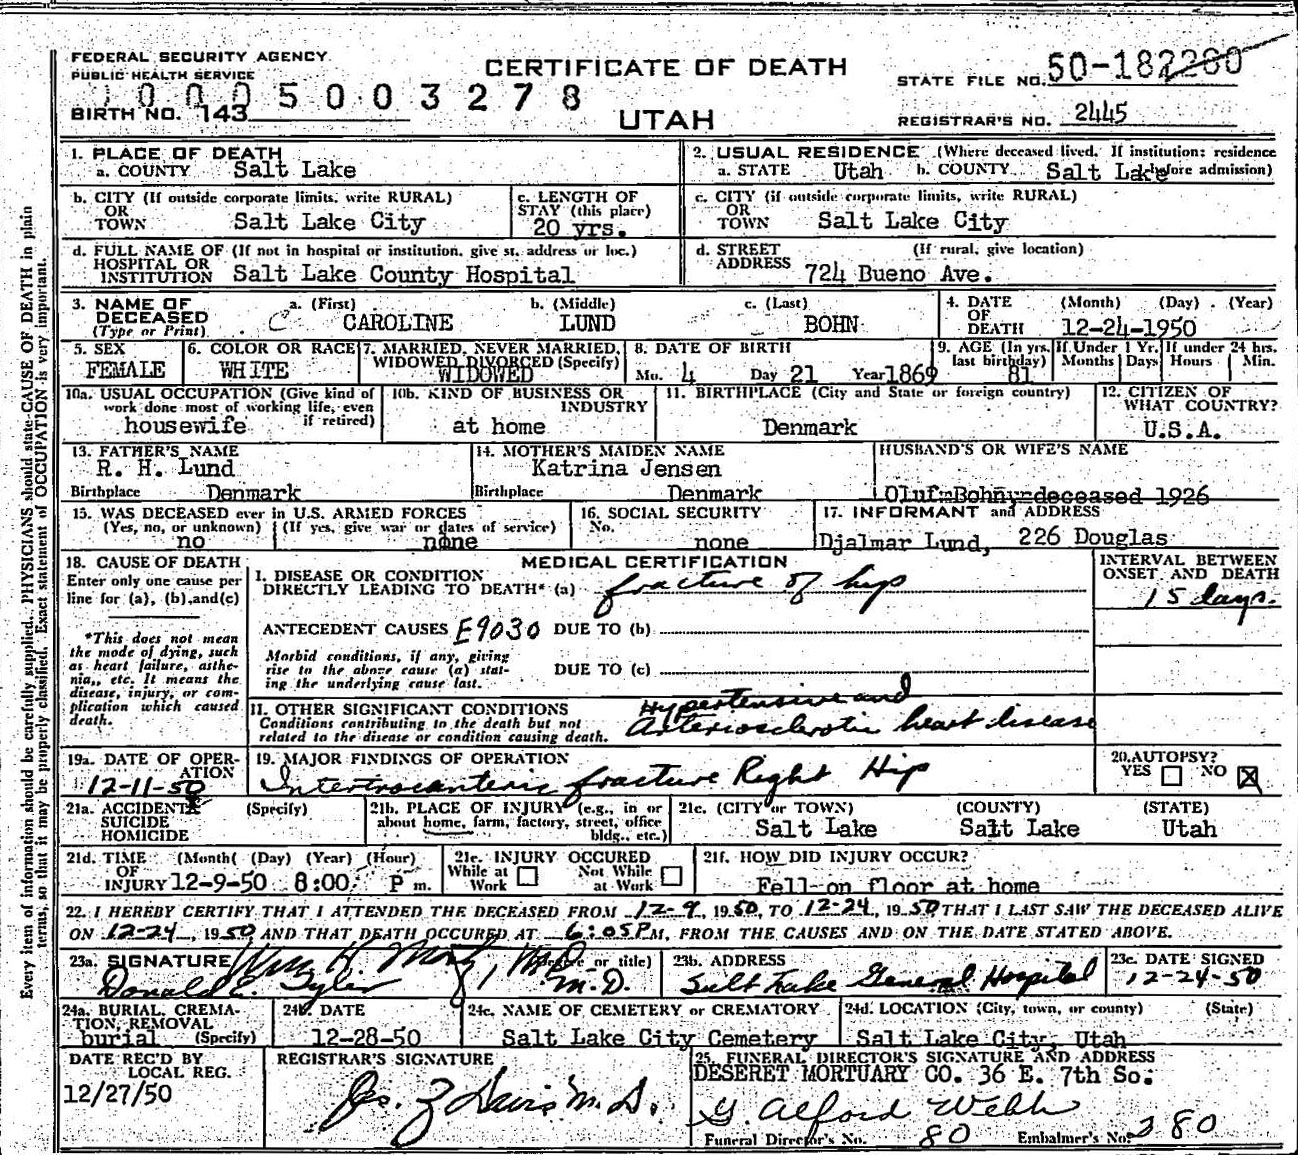 FEDERAL SECURITY AGENCY
PUBLIC HEALTH SERVICE
CERTIFICATE OF DEATH
STATE FILE NO. 50-182280
0005003278
BIRTH NO. 143
UTAH
REGISTRAR'S NO. 2445
1. PLACE OF DEATH
a. COUNTY Salt Lake
2. USUAL RESIDENCE (Where deceased lived. If institution: residence before admission)
a. STATE Utah b. COUNTY Salt Lake
b. CITY (If outside corporate limits, write RURAL)
OR
TOWN Salt Lake City
c. LENGTH OF
STAY (this place)
20 yrs.
c. CITY (if outside corporate limits, write RURAL)
OR
TOWN Salt Lake City
d. FULL NAME OF (If not in hospital or institution, give st. address or loc.)
HOSPITAL OR
INSTITUTION Salt Lake County Hospital
d. STREET (If rural, give location)
ADDRESS 724 Bueno Ave.
3. NAME OF
DECEASED
(Type or Print)
a. (First) b. (Middle) c. (Last)
C CAROLINE LUND BOHN
4. DATE (Month) (Day) (Year)
OF
DEATH 12-24-1950
5. SEX
FEMALE
6. COLOR OR RACE
WHITE
7. MARRIED, NEVER MARRIED,
WIDOWED DIVORCED (Specify)
WIDOWED
8. DATE OF BIRTH
Mo. 4 Day 21 Year 1869
9. AGE (In yrs. last birthday) 81
If Under 1 Yr.
Months Days
If under 24 hrs.
Hours Min.
10a. USUAL OCCUPATION (Give kind of
work done most of working life, even
if retired)
housewife
10b. KIND OF BUSINESS OR
INDUSTRY
at home
11. BIRTHPLACE (City and State or foreign country)
Denmark
12. CITIZEN OF
WHAT COUNTRY?
U.S.A.
13. FATHER'S NAME
R. H. Lund
Birthplace Denmark
14. MOTHER'S MAIDEN NAME
Katrina Jensen
Birthplace Denmark
HUSBAND'S OR WIFE'S NAME
Oluf Bohn, deceased 1926
15. WAS DECEASED ever in U.S. ARMED FORCES
(Yes, no, or unknown) (If yes, give war or dates of service)
no none
16. SOCIAL SECURITY
No.
none
17. INFORMANT and ADDRESS
Djalmar Lund, 226 Douglas
18. CAUSE OF DEATH
Enter only one cause per
line for (a), (b), and (c)
*This does not mean
the mode of dying, such
as heart failure, asthe-
nia, etc. It means the
disease, injury, or com-
plication which caused
death.
MEDICAL CERTIFICATION
I. DISEASE OR CONDITION
DIRECTLY LEADING TO DEATH* (a) fracture of hip
ANTECEDENT CAUSES E9030 DUE TO (b)
Morbid conditions, if any, giving
rise to the above cause (a) stat-
ing the underlying cause last.
DUE TO (c)
II. OTHER SIGNIFICANT CONDITIONS
Conditions contributing to the death but not
related to the disease or condition causing death.
Hypertensive and
Arteriosclerotic heart disease
INTERVAL BETWEEN
ONSET AND DEATH
15 days.
19a. DATE OF OPER-
ATION
12-11-50
19. MAJOR FINDINGS OF OPERATION
Intertrocanteric fracture Right Hip
20. AUTOPSY?
YES NO X
21a. ACCIDENT X (Specify)
SUICIDE
HOMICIDE
21b. PLACE OF INJURY (e.g., in or
about home, farm, factory, street, office
bldg., etc.)
21c. (CITY or TOWN) (COUNTY) (STATE)
Salt Lake Salt Lake Utah
21d. TIME (Month( (Day) (Year) (Hour)
OF
INJURY 12-9-50 8:00 P m.
21e. INJURY OCCURED
While at Work Not While at Work
21f. HOW DID INJURY OCCUR?
Fell on floor at home
22. I HEREBY CERTIFY THAT I ATTENDED THE DECEASED FROM 12-9, 1950, TO 12-24, 1950 THAT I LAST SAW THE DECEASED ALIVE
ON 12-24, 1950 AND THAT DEATH OCCURED AT 6:05 P M, FROM THE CAUSES AND ON THE DATE STATED ABOVE.
23a. SIGNATURE (Degree or title)
Donald E. Tyler M.D.
23b. ADDRESS
Salt Lake General Hospital
23c. DATE SIGNED
12-24-50
24a. BURIAL, CREMA-
TION, REMOVAL
burial (Specify)
24b. DATE
12-28-50
24c. NAME OF CEMETERY or CREMATORY
Salt Lake City Cemetery
24d. LOCATION (City, town, or county) (State)
Salt Lake City, Utah
DATE REC'D BY
LOCAL REG.
12/27/50
REGISTRAR'S SIGNATURE
M.D.
25. FUNERAL DIRECTOR'S SIGNATURE AND ADDRESS
DESERET MORTUARY CO. 36 E. 7th So.
G. Alford Webb
Funeral Director's No. 80 Embalmer's No. 380
Every item of information should be carefully supplied. PHYSICIANS should state CAUSE OF DEATH in plain
terms, so that it may be properly classified. Exact statement of OCCUPATION is very important.